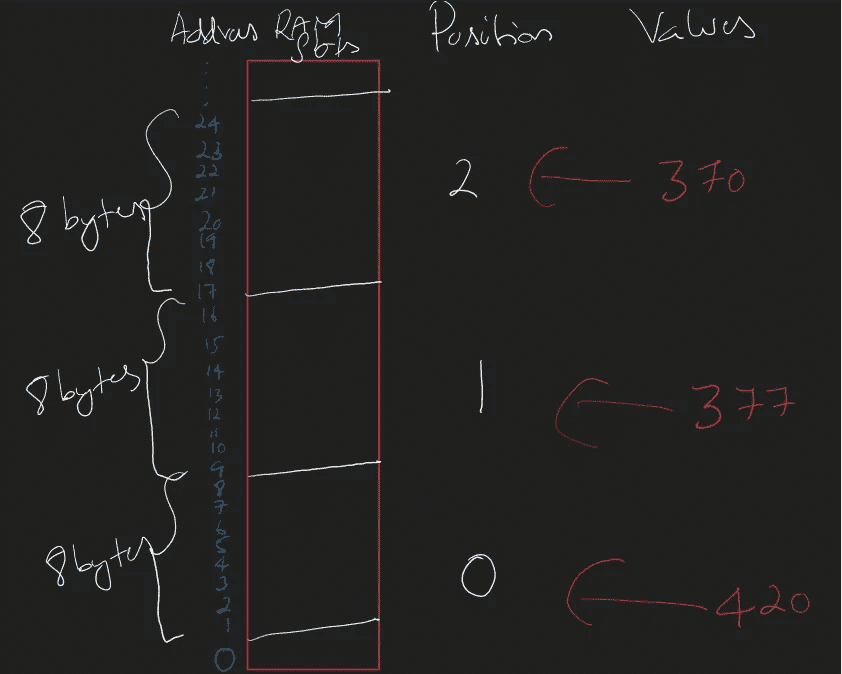 Address RAM Slots Position Values
24
23
22
21
20
19
18
17
16
15
14
13
12
11
10
9
8
7
6
5
4
3
2
1
0
8 bytes
8 bytes
8 bytes
2 370
1 377
0 420